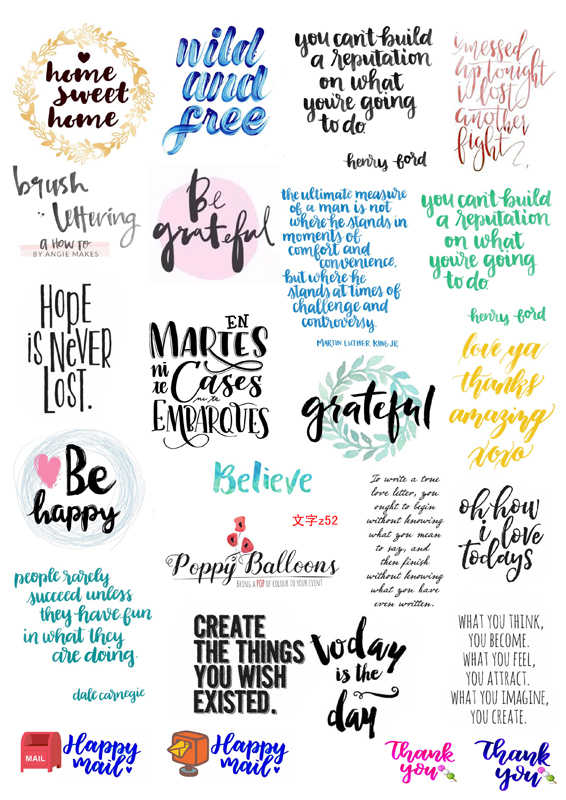 home
sweet
home
wild
and
free
you can't build
a reputation
on what
you're going
to do
henry ford
i messed
up tonight
i lost
another
fight
brush
lettering
a how to
BY ANGIE MAKES
Be
grateful
the ultimate measure
of a man is not
where he stands in
moments of
comfort and
convenience.
but where he
stands at times of
challenge and
controversy.
MARTIN LUTHER KING JR
you can't build
a reputation
on what
you're going
to do
henry ford
HOPE
IS NEVER
LOST.
EN
MARTES
ni te
Cases
ni te
EMBARQUES
grateful
love ya
thanks
amazing
xoxo
Be
happy
Believe
文字z52
Poppy Balloons
BRING A POP OF COLOUR TO YOUR EVENT
To write a true
love letter, you
ought to begin
without knowing
what you mean
to say, and
then finish
without knowing
what you have
even written.
oh how
i love
todays
people rarely
succeed unless
they have fun
in what they
are doing.
dale carnegie
CREATE
THE THINGS
YOU WISH
EXISTED.
today
is the
day
WHAT YOU THINK,
YOU BECOME.
WHAT YOU FEEL,
YOU ATTRACT.
WHAT YOU IMAGINE,
YOU CREATE.
MAIL
Happy
mail
Happy
mail
Thank
you
Thank
you